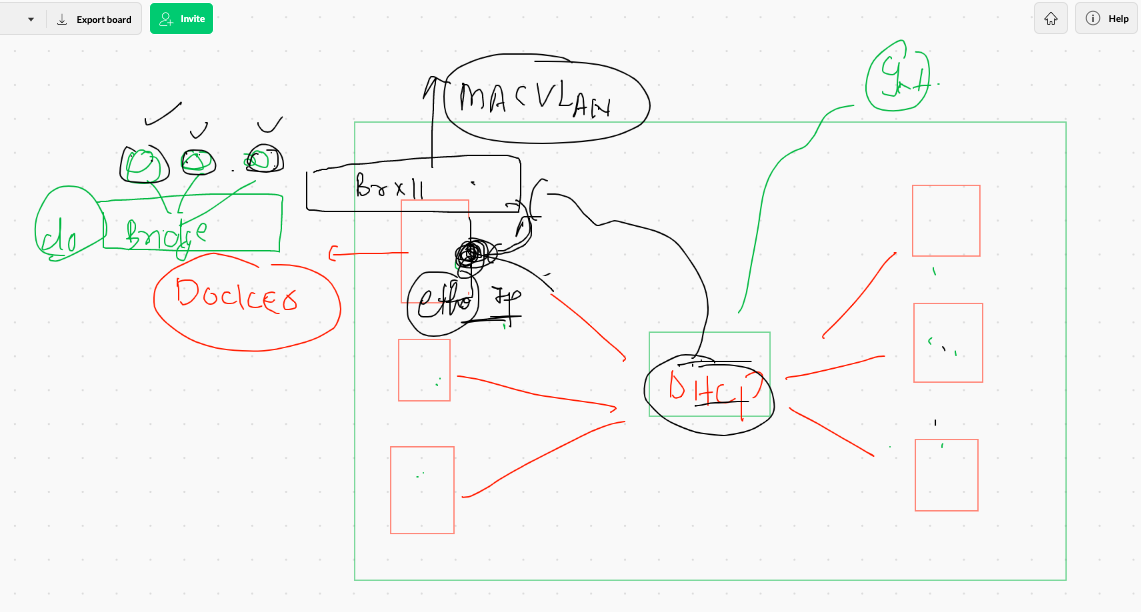 Export board
Invite
Help
MACVLAN
Brx11
Bridge
do
Docker
eth0 IP
DHCP